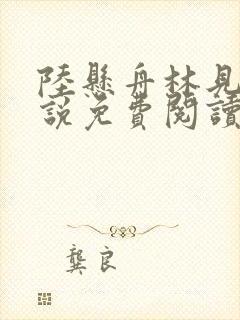 陸懸舟林見
說免費閱讀
龔良